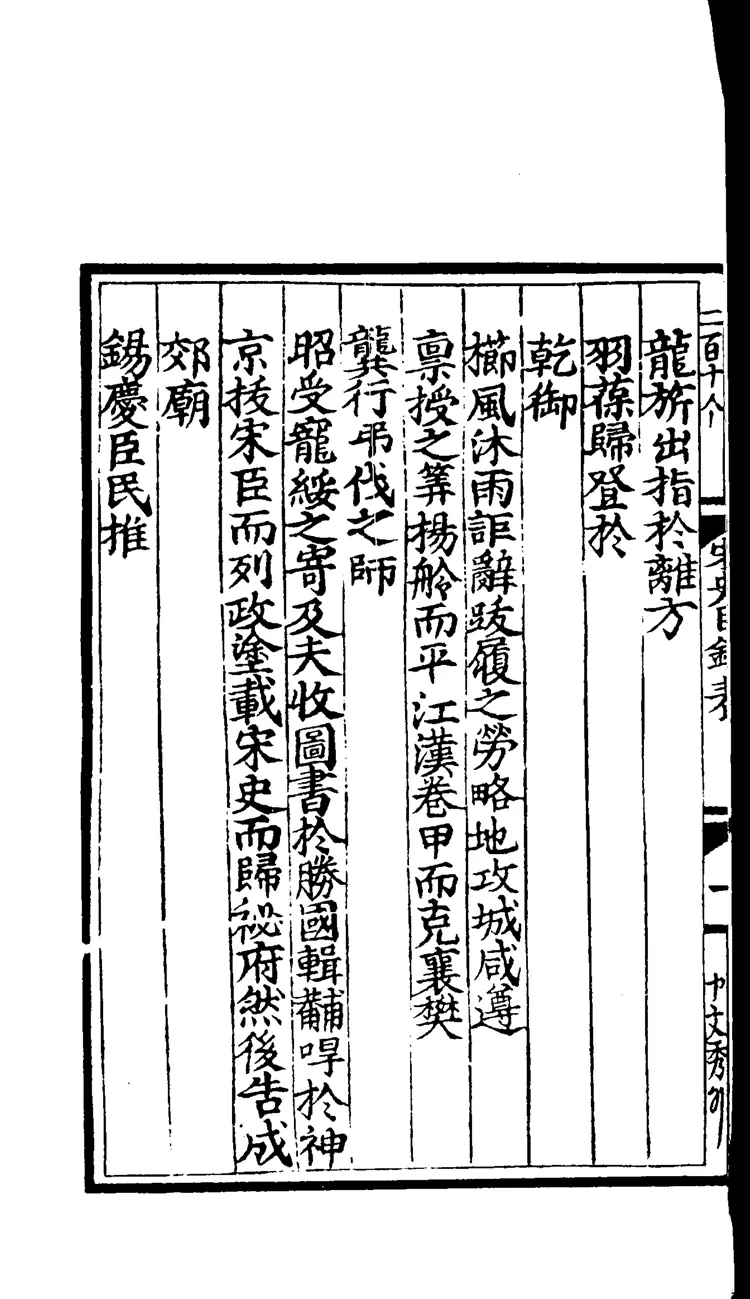 龍旂出指於離方
羽葆歸登於
乾御
櫛風沐雨詎辭跋履之勞略地攻城咸遵
禀授之筭揚舲而平江漢卷甲而克襄樊
龔行弔伐之師
昭受寵綏之寄及夫收圖書於勝國輯黼冔於神
京拔宋臣而列政塗載宋史而歸祕府然後告成
郊廟
錫慶臣民推